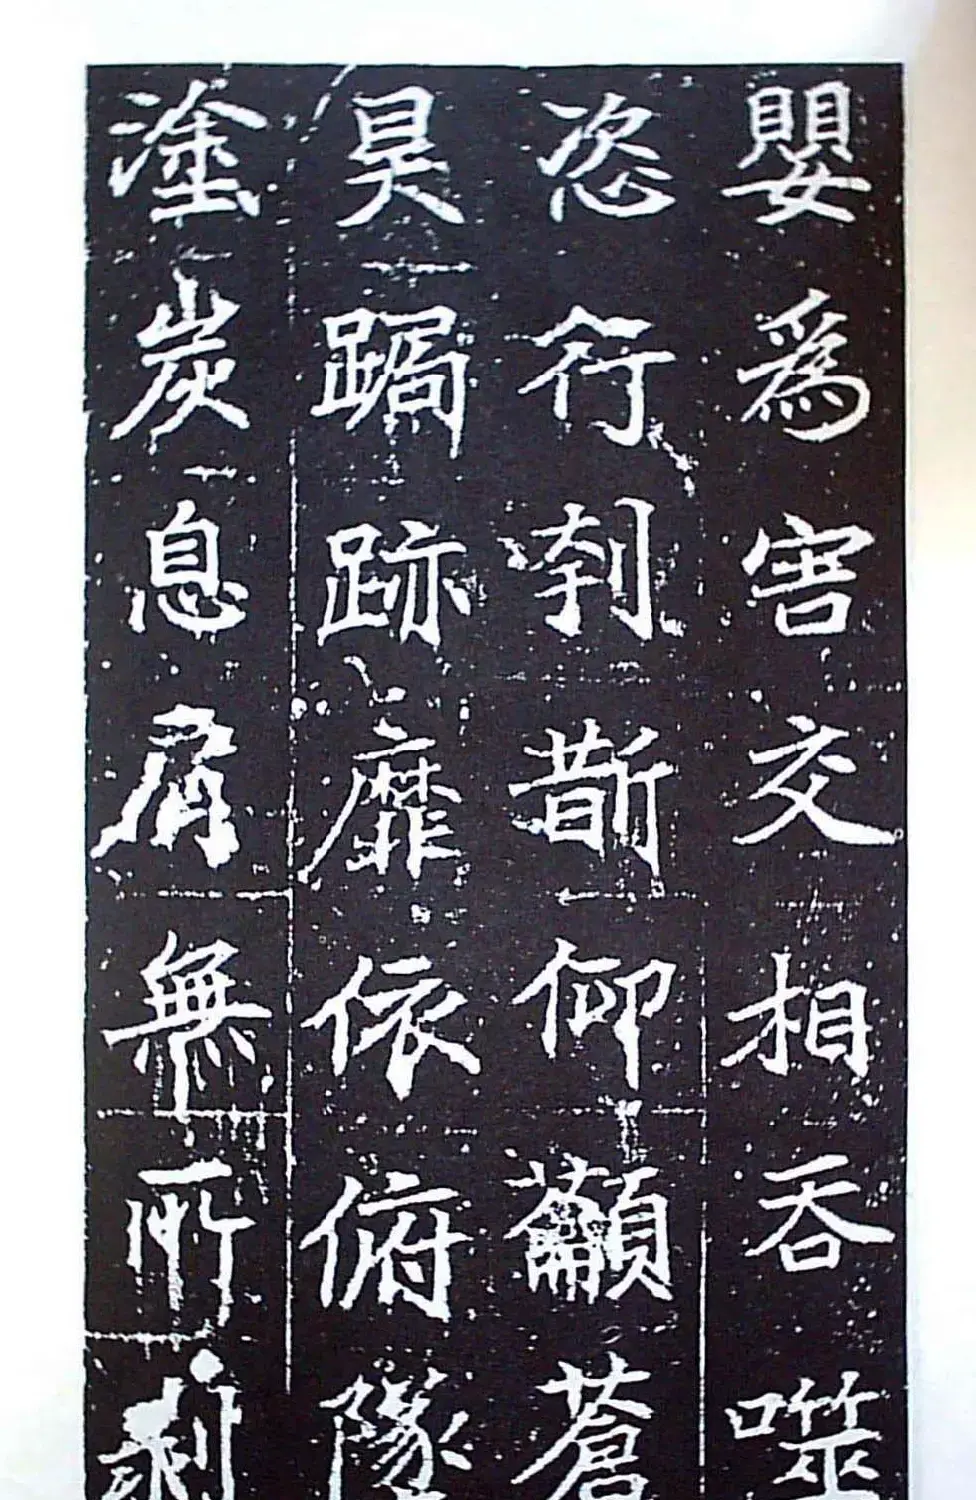 嬰為害交相吞噬
恣行刳斮仰籲蒼
昊跼跡靡依俯隊
塗炭息肩無所剥